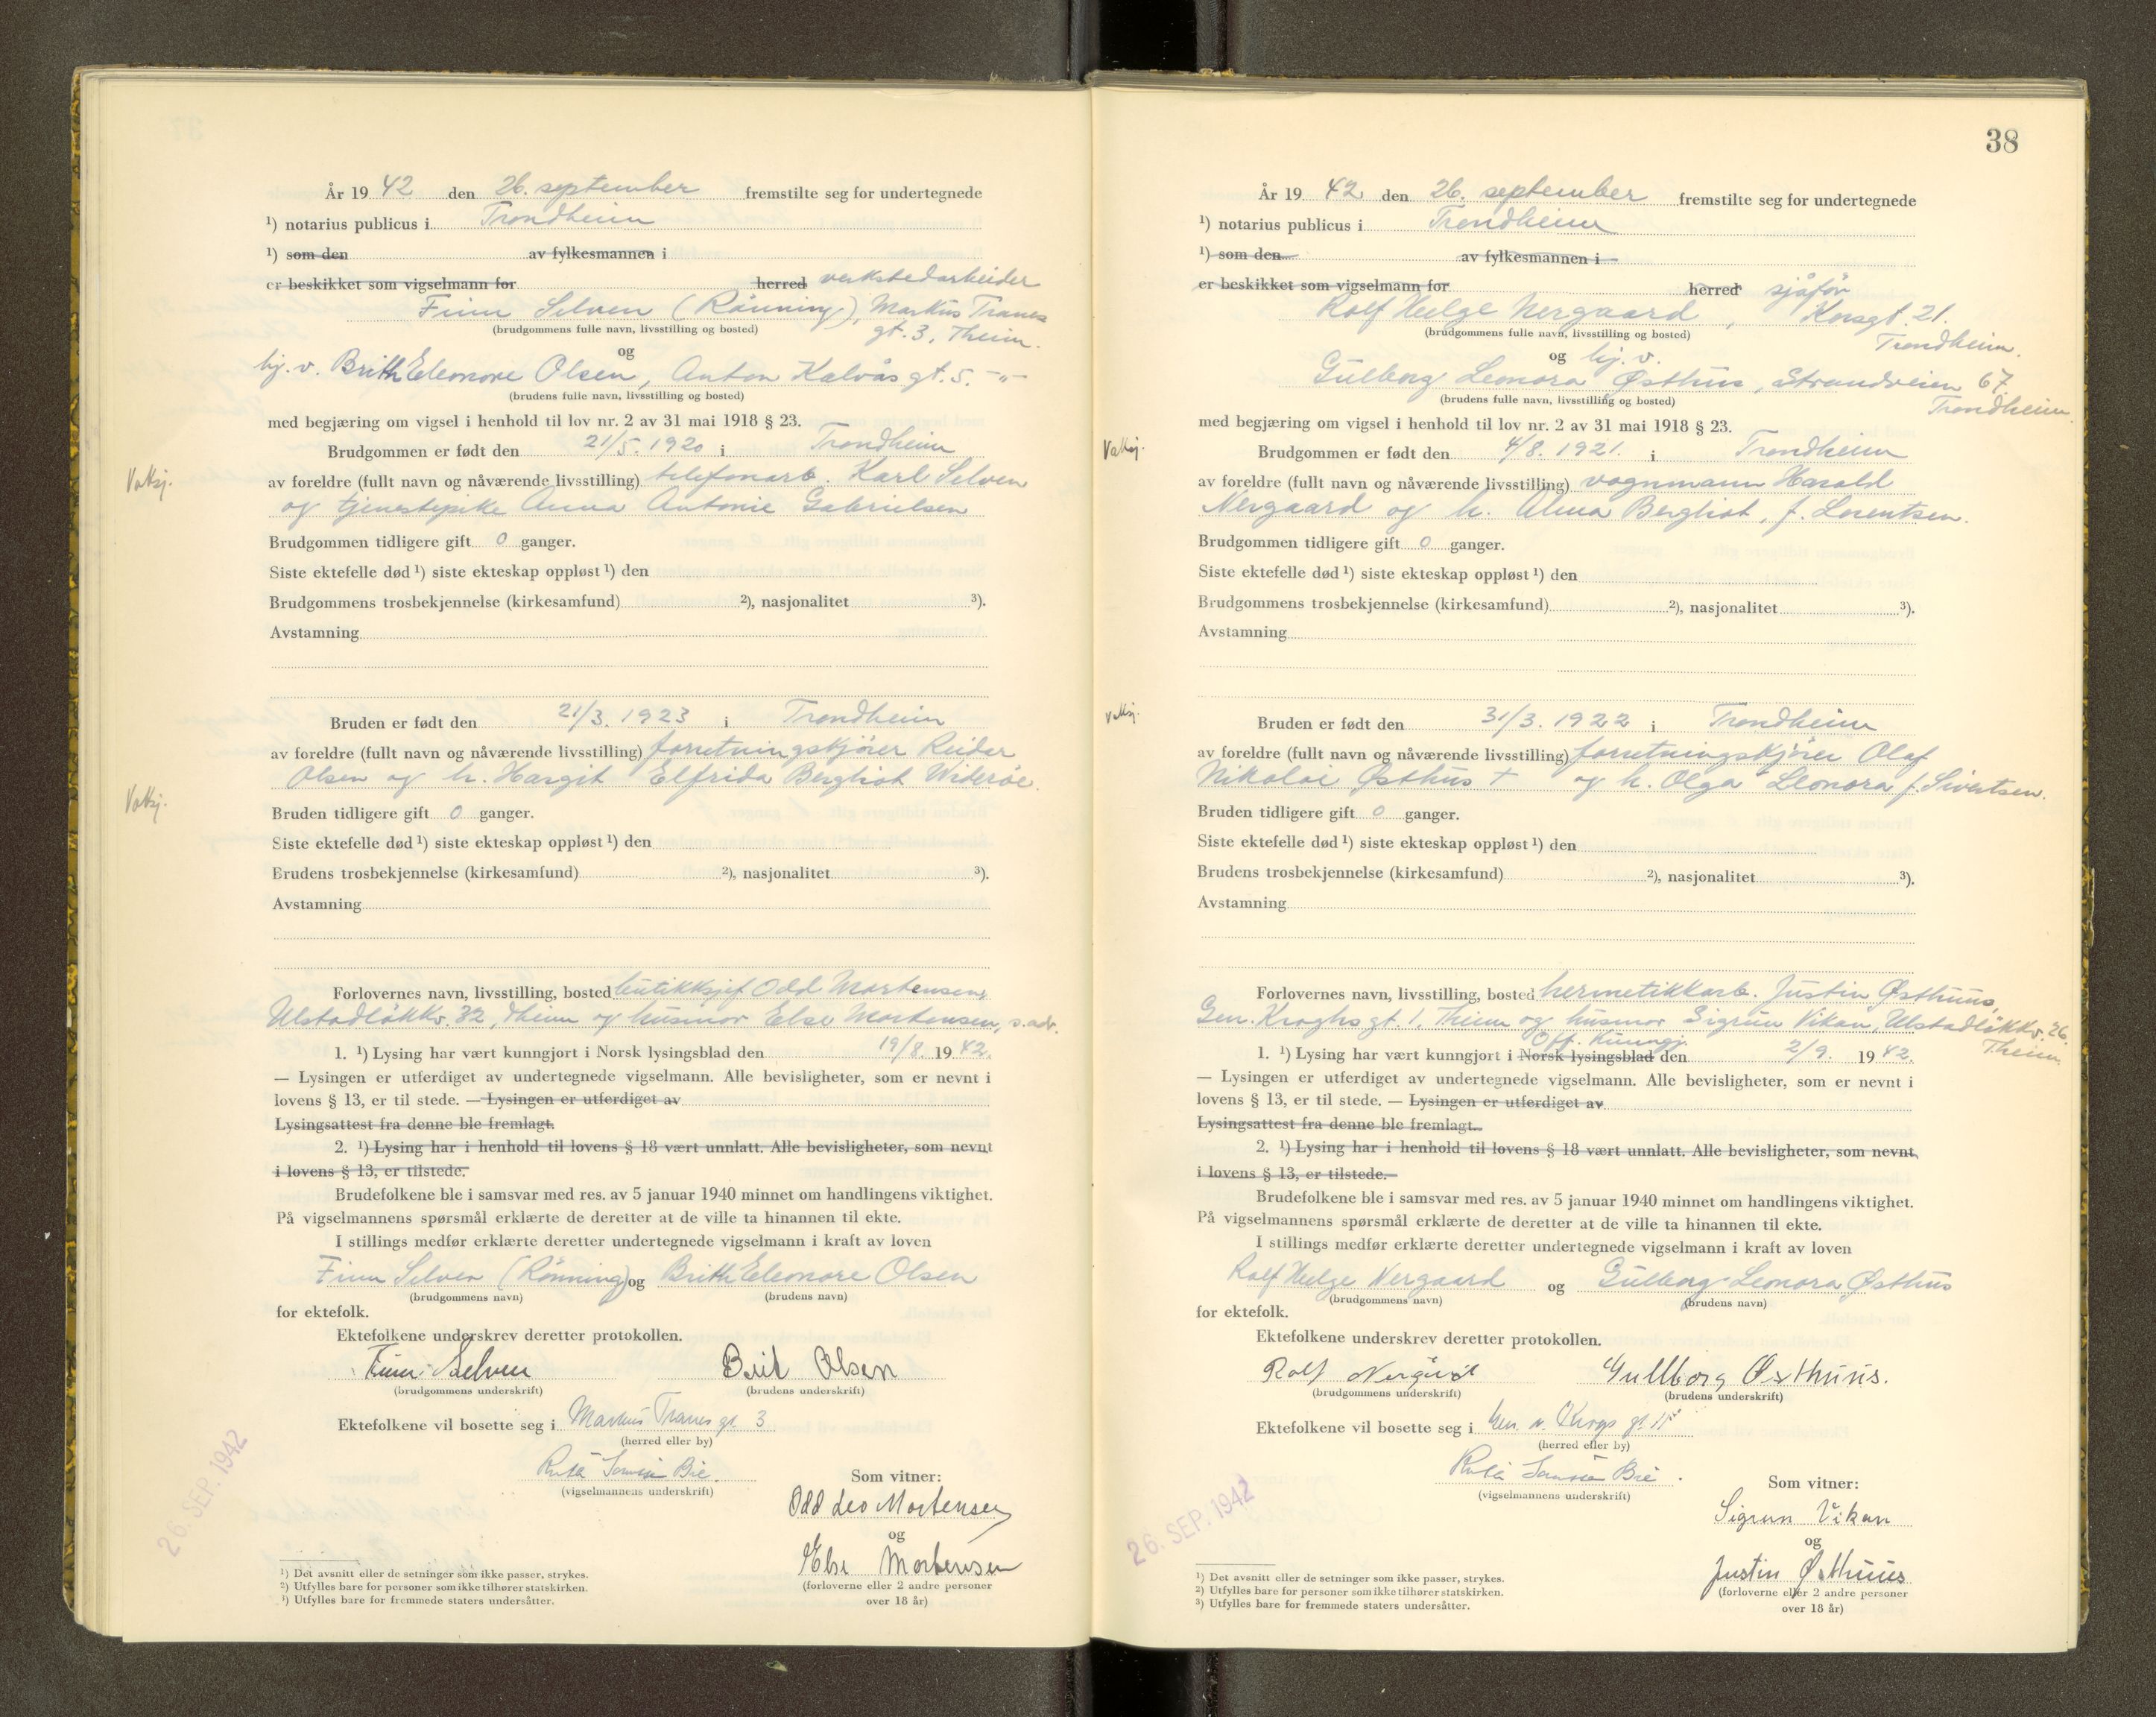 År 19 42 den 26. september fremstilte seg for undertegnede
¹) notarius publicus i Trondheim
¹) som den av fylkesmannen i
er beskikket som vigselmann for herred verkstedarbeider
Finn Selven (Rönning), Markus Tranes
gt. 3, Theim.
(brudgommens fulle navn, livsstilling og bosted)
og
hj. v. Brith Eleonore Olsen, Anton Kalvås gt. 5. -"-
(brudens fulle navn, livsstilling og bosted)
med begjæring om vigsel i henhold til lov nr. 2 av 31 mai 1918 § 23.
Brudgommen er født den 21/5. 1920 i Trondheim
Vattsj.
av foreldre (fullt navn og nåværende livsstilling) telefonarb. Karl Selven
og tjenestepike Anna Antonie Gabrielsen
Brudgommen tidligere gift 0 ganger.
Siste ektefelle død ¹) siste ekteskap oppløst ¹) den
Brudgommens trosbekjennelse (kirkesamfund) ²), nasjonalitet ³).
Avstamning
Bruden er født den 21/3. 1923 i Trondheim
av foreldre (fullt navn og nåværende livsstilling) forretningskjörer Reidar
Olsen og h. Margit Elfrida Bergliot Wideröe.
Vattsj.
Bruden tidligere gift 0 ganger.
Siste ektefelle død ¹) siste ekteskap oppløst ¹) den
Brudens trosbekjennelse (kirkesamfund) ²), nasjonalitet ³).
Avstamning
Forlovernes navn, livsstilling, bosted butikksjef Odd Mortensen,
Ulstadlökkv. 32, Theim og husmor Else Mortensen, s. adr.
1. ¹) Lysing har vært kunngjort i Norsk lysingsblad den 19/8. 19 42.
— Lysingen er utferdiget av undertegnede vigselmann. Alle bevisligheter, som er nevnt i
lovens § 13, er til stede. — Lysingen er utferdiget av
Lysingsattest fra denne ble fremlagt.
2. ¹) Lysing har i henhold til lovens § 18 vært unnlatt. Alle bevisligheter, som nevnt
i lovens § 13, er tilstede.
Brudefolkene ble i samsvar med res. av 5 januar 1940 minnet om handlingens viktighet.
På vigselmannens spørsmål erklærte de deretter at de ville ta hinannen til ekte.
I stillings medfør erklærte deretter undertegnede vigselmann i kraft av loven
Finn Selven (Rönning) og Brith Eleonore Olsen
(brudgommens navn) (brudens navn)
for ektefolk.
Ektefolkene underskrev deretter protokollen.
Finn Selven Brit Olsen
(brudgommens underskrift) (brudens underskrift)
Ektefolkene vil bosette seg i Markus Tranes gt 3
(herred eller by)
26. SEP. 1942
Bie.
(vigselmannens underskrift)
Som vitner:
Odd Leo Mortensen
og
Else Mortensen
(forloverne eller 2 andre personer
over 18 år)
¹) Det avsnitt eller de setninger som ikke passer, strykes.
²) Utfylles bare for personer som ikke tilhører statskirken.
³) Utfylles bare for fremmede staters undersåtter.
38
År 19 42 den 26. september fremstilte seg for undertegnede
¹) notarius publicus i Trondheim
¹) som den av fylkesmannen i
er beskikket som vigselmann for herred sjåför
Rolf Helge Nergaard, Korsgt. 21.
Trondheim.
(brudgommens fulle navn, livsstilling og bosted)
og hj. v.
Gulborg Leonora Østhus, Strandveien 67.
Trondheim
(brudens fulle navn, livsstilling og bosted)
med begjæring om vigsel i henhold til lov nr. 2 av 31 mai 1918 § 23.
Vattsj.
Brudgommen er født den 4/8. 1921. i Trondheim
av foreldre (fullt navn og nåværende livsstilling) vognmann Harald
Nergaard og h. Alma Bergliot, f. Lorentsen.
Brudgommen tidligere gift 0 ganger.
Siste ektefelle død ¹) siste ekteskap oppløst ¹) den
Brudgommens trosbekjennelse (kirkesamfund) ²), nasjonalitet ³).
Avstamning
Vattsj.
Bruden er født den 31/3. 1922 i Trondheim
av foreldre (fullt navn og nåværende livsstilling) forretningskjörer Olaf
Nikolai Østhus + og h. Olga Leonora f. Sivertsen.
Bruden tidligere gift 0 ganger.
Siste ektefelle død ¹) siste ekteskap oppløst ¹) den
Brudens trosbekjennelse (kirkesamfund) ²), nasjonalitet ³).
Avstamning
Forlovernes navn, livsstilling, bosted hermetikkarb. Justin Østhuus,
Gen. Kroghs gt. 1, Theim og husmor Sigrun Vikan, Ulstadlökkv. 26.
Theim.
Off. kunngj.
1. ¹) Lysing har vært kunngjort i Norsk lysingsblad den 2/9. 19 42.
— Lysingen er utferdiget av undertegnede vigselmann. Alle bevisligheter, som er nevnt i
lovens § 13, er til stede. — Lysingen er utferdiget av
Lysingsattest fra denne ble fremlagt.
2. ¹) Lysing har i henhold til lovens § 18 vært unnlatt. Alle bevisligheter, som nevnt
i lovens § 13, er tilstede.
Brudefolkene ble i samsvar med res. av 5 januar 1940 minnet om handlingens viktighet.
På vigselmannens spørsmål erklærte de deretter at de ville ta hinannen til ekte.
I stillings medfør erklærte deretter undertegnede vigselmann i kraft av loven
Rolf Helge Nergaard og Gulborg Leonora Østhus
(brudgommens navn) (brudens navn)
for ektefolk.
Ektefolkene underskrev deretter protokollen.
Rolf Nergård Gullborg Østhuus.
(brudgommens underskrift) (brudens underskrift)
Ektefolkene vil bosette seg i Gen. v. Krogs gt.
(herred eller by)
26. SEP. 1942
Bie.
(vigselmannens underskrift)
Som vitner:
Sigrun Vikan
og
Justin Østhuus
(forloverne eller 2 andre personer
over 18 år)
¹) Det avsnitt eller de setninger som ikke passer, strykes.
²) Utfylles bare for personer som ikke tilhører statskirken.
³) Utfylles bare for fremmede staters undersåtter.